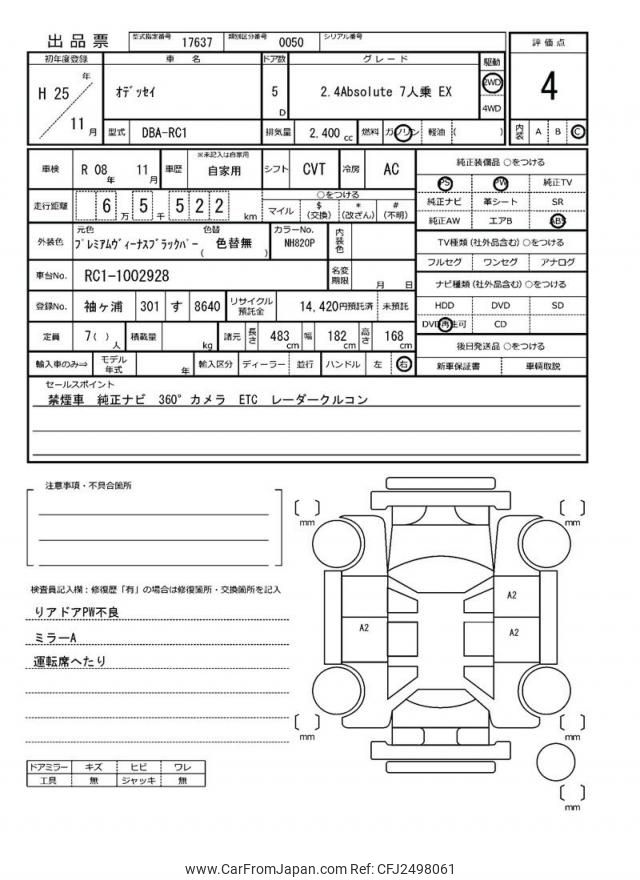 出品票 型式指定番号 17637 類別区分番号 0050 シリアル番号
初年度登録 車 名 ドア数 グレード 駆動 評価点
H 25 年 11 月 オデッセイ 5 D 2.4Absolute 7人乗 EX 2WD 4WD 4
型式 DBA-RC1 排気量 2.400 cc 燃料 ガソリン 軽油 ( ) 内装 A B C
車検 R 08 年 11 月 車歴 ※未記入は自家用 自家用 シフト CVT 冷房 AC
走行距離 6 万 5 千 5 2 2 km ○をつける
マイル $ (交換) * (改ざん) # (不明)
外装色 元色 プレミアムヴィーナスブラックパー 色替 ( 色替無 ) カラーNo. NH820P 内装色
車台No. RC1-1002928 名変期限 月 日
登録No. 袖ヶ浦 301 す 8640 リサイクル預託金 14,420円預託済 未預託
定員 7( ) 人 積載量 kg 諸元 長さ 483 cm 幅 182 cm 高さ 168 cm
輸入車のみ⇒ モデル年式 年 輸入区分 ディーラー 並行 ハンドル 左 右
純正装備品 ○をつける
PS PW 純正TV
純正ナビ 革シート SR
純正AW エアB ABS
TV種類 (社外品含む) ○をつける
フルセグ ワンセグ アナログ
ナビ種類 (社外品含む) ○をつける
HDD DVD SD
DVD再生可 CD
後日発送品 ○をつける
新車保証書 車輌取説
セールスポイント
禁煙車 純正ナビ 360°カメラ ETC レーダークルコン
注意事項・不具合箇所
検査員記入欄：修復歴「有」の場合は修復箇所・交換箇所を記入
りアドアPW不良
ミラーA
運転席へたり
ドアミラー キズ ヒビ ワレ
工具 無 ジャッキ 無
mm
mm
A2
A2
A2
mm
mm
mm
www.CarFromJapan.com Ref: CFJ2498061